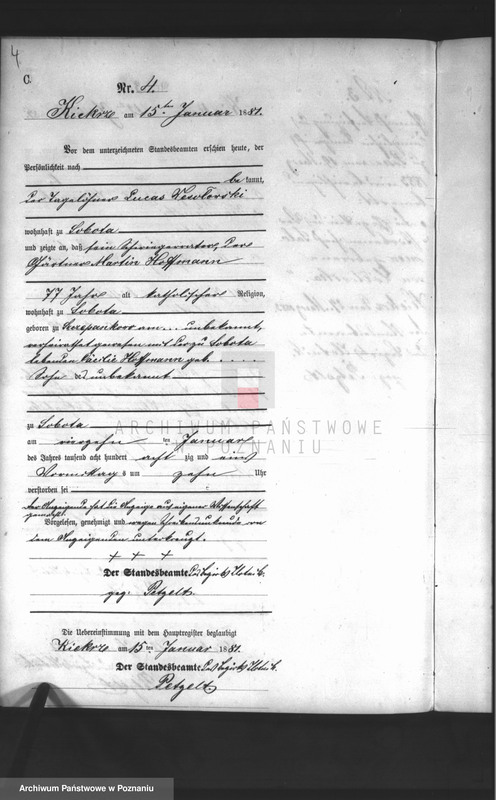 4
C.
Nr. 4.
Kiekrz am 15ten Januar 1881.
Vor dem unterzeichneten Standesbeamten erschien heute, der
Persönlichkeit nach
be kannt,
der Tagelöhner Lucas
wohnhaft zu Sobota
und zeigte an, daß sein Schwiegervater, der
Gärtner Martin Hoffmann
77 Jahr alt katholischer Religion,
wohnhaft zu Sobota
geboren zu am ... unbekannt,
verheirathet gewesen mit der zu Sobota
lebenden Cäcilie Hoffmann geb. . . . .
Sohn des unbekannt
zu Sobota
am vierzehn ten Januar
des Jahres tausend acht hundert acht zig und ein
Vormittags um zehn Uhr
verstorben sei
der Anzeigende hat die Anzeige aus eigener Wissenschaft
gemacht.
Vorgelesen, genehmigt und wegen Schreibunkunde von
dem Anzeigenden unterkreuzt.
+ + +
Der Standesbeamte. des Bezirks
gez. Petzelt
Die Uebereinstimmung mit dem Hauptregister beglaubigt
Kiekrz am 15ten Januar 1881.
Der Standesbeamte. des Bezirks
Petzelt
ARCHIWUM PAŃSTWOWE
W POZNANIU
Archiwum Państwowe w Poznaniu